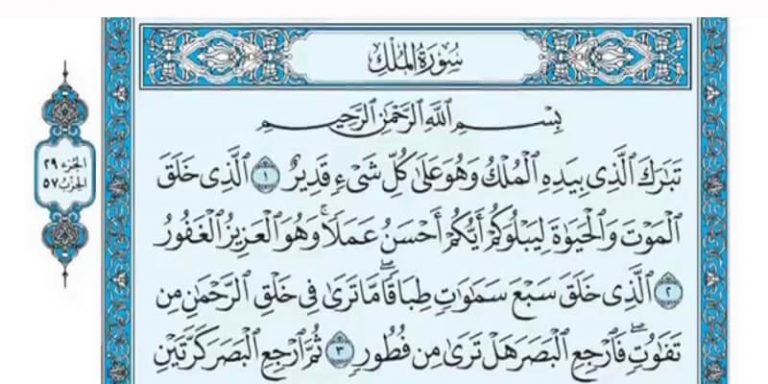 سُورَةُ المُلْكِ
بِسْمِ ٱللَّهِ ٱلرَّحْمَٰنِ ٱلرَّحِيمِ
تَبَٰرَكَ ٱلَّذِى بِيَدِهِ ٱلْمُلْكُ وَهُوَ عَلَىٰ كُلِّ شَىْءٍ قَدِيرٌ ١ ٱلَّذِى خَلَقَ
ٱلْمَوْتَ وَٱلْحَيَوٰةَ لِيَبْلُوَكُمْ أَيُّكُمْ أَحْسَنُ عَمَلًا ۚ وَهُوَ ٱلْعَزِيزُ ٱلْغَفُورُ
٢ ٱلَّذِى خَلَقَ سَبْعَ سَمَٰوَٰتٍ طِبَاقًا ۖ مَّا تَرَىٰ فِى خَلْقِ ٱلرَّحْمَٰنِ مِن
تَفَٰوُتٍ ۖ فَٱرْجِعِ ٱلْبَصَرَ هَلْ تَرَىٰ مِن فُطُورٍ ٣ ثُمَّ ٱرْجِعِ ٱلْبَصَرَ كَرَّتَيْنِ
الجُزء ٢٩
الحِزْب ٥٧